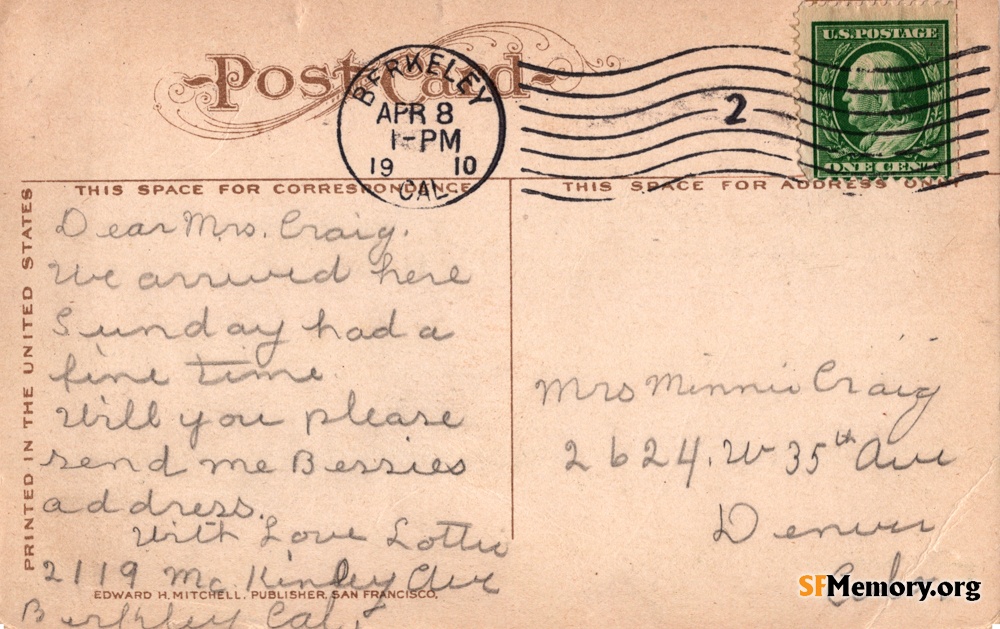 Post Card
BERKELEY
APR 8
1-PM
19 10
CAL
2
U.S. POSTAGE
ONE CENT
THIS SPACE FOR CORRESPONDENCE
THIS SPACE FOR ADDRESS ONLY
PRINTED IN THE UNITED STATES
Dear Mrs. Craig.
We arrived here
Sunday had a
fine time
Will you please
send me Bessies
address.
With Love Lottie
2119 Mc Kinley Ave
Berkley Cal.
EDWARD H. MITCHELL, PUBLISHER, SAN FRANCISCO.
Mrs Minnie Craig
2624. W 35th Ave
Denver
Colo
SFMemory.org